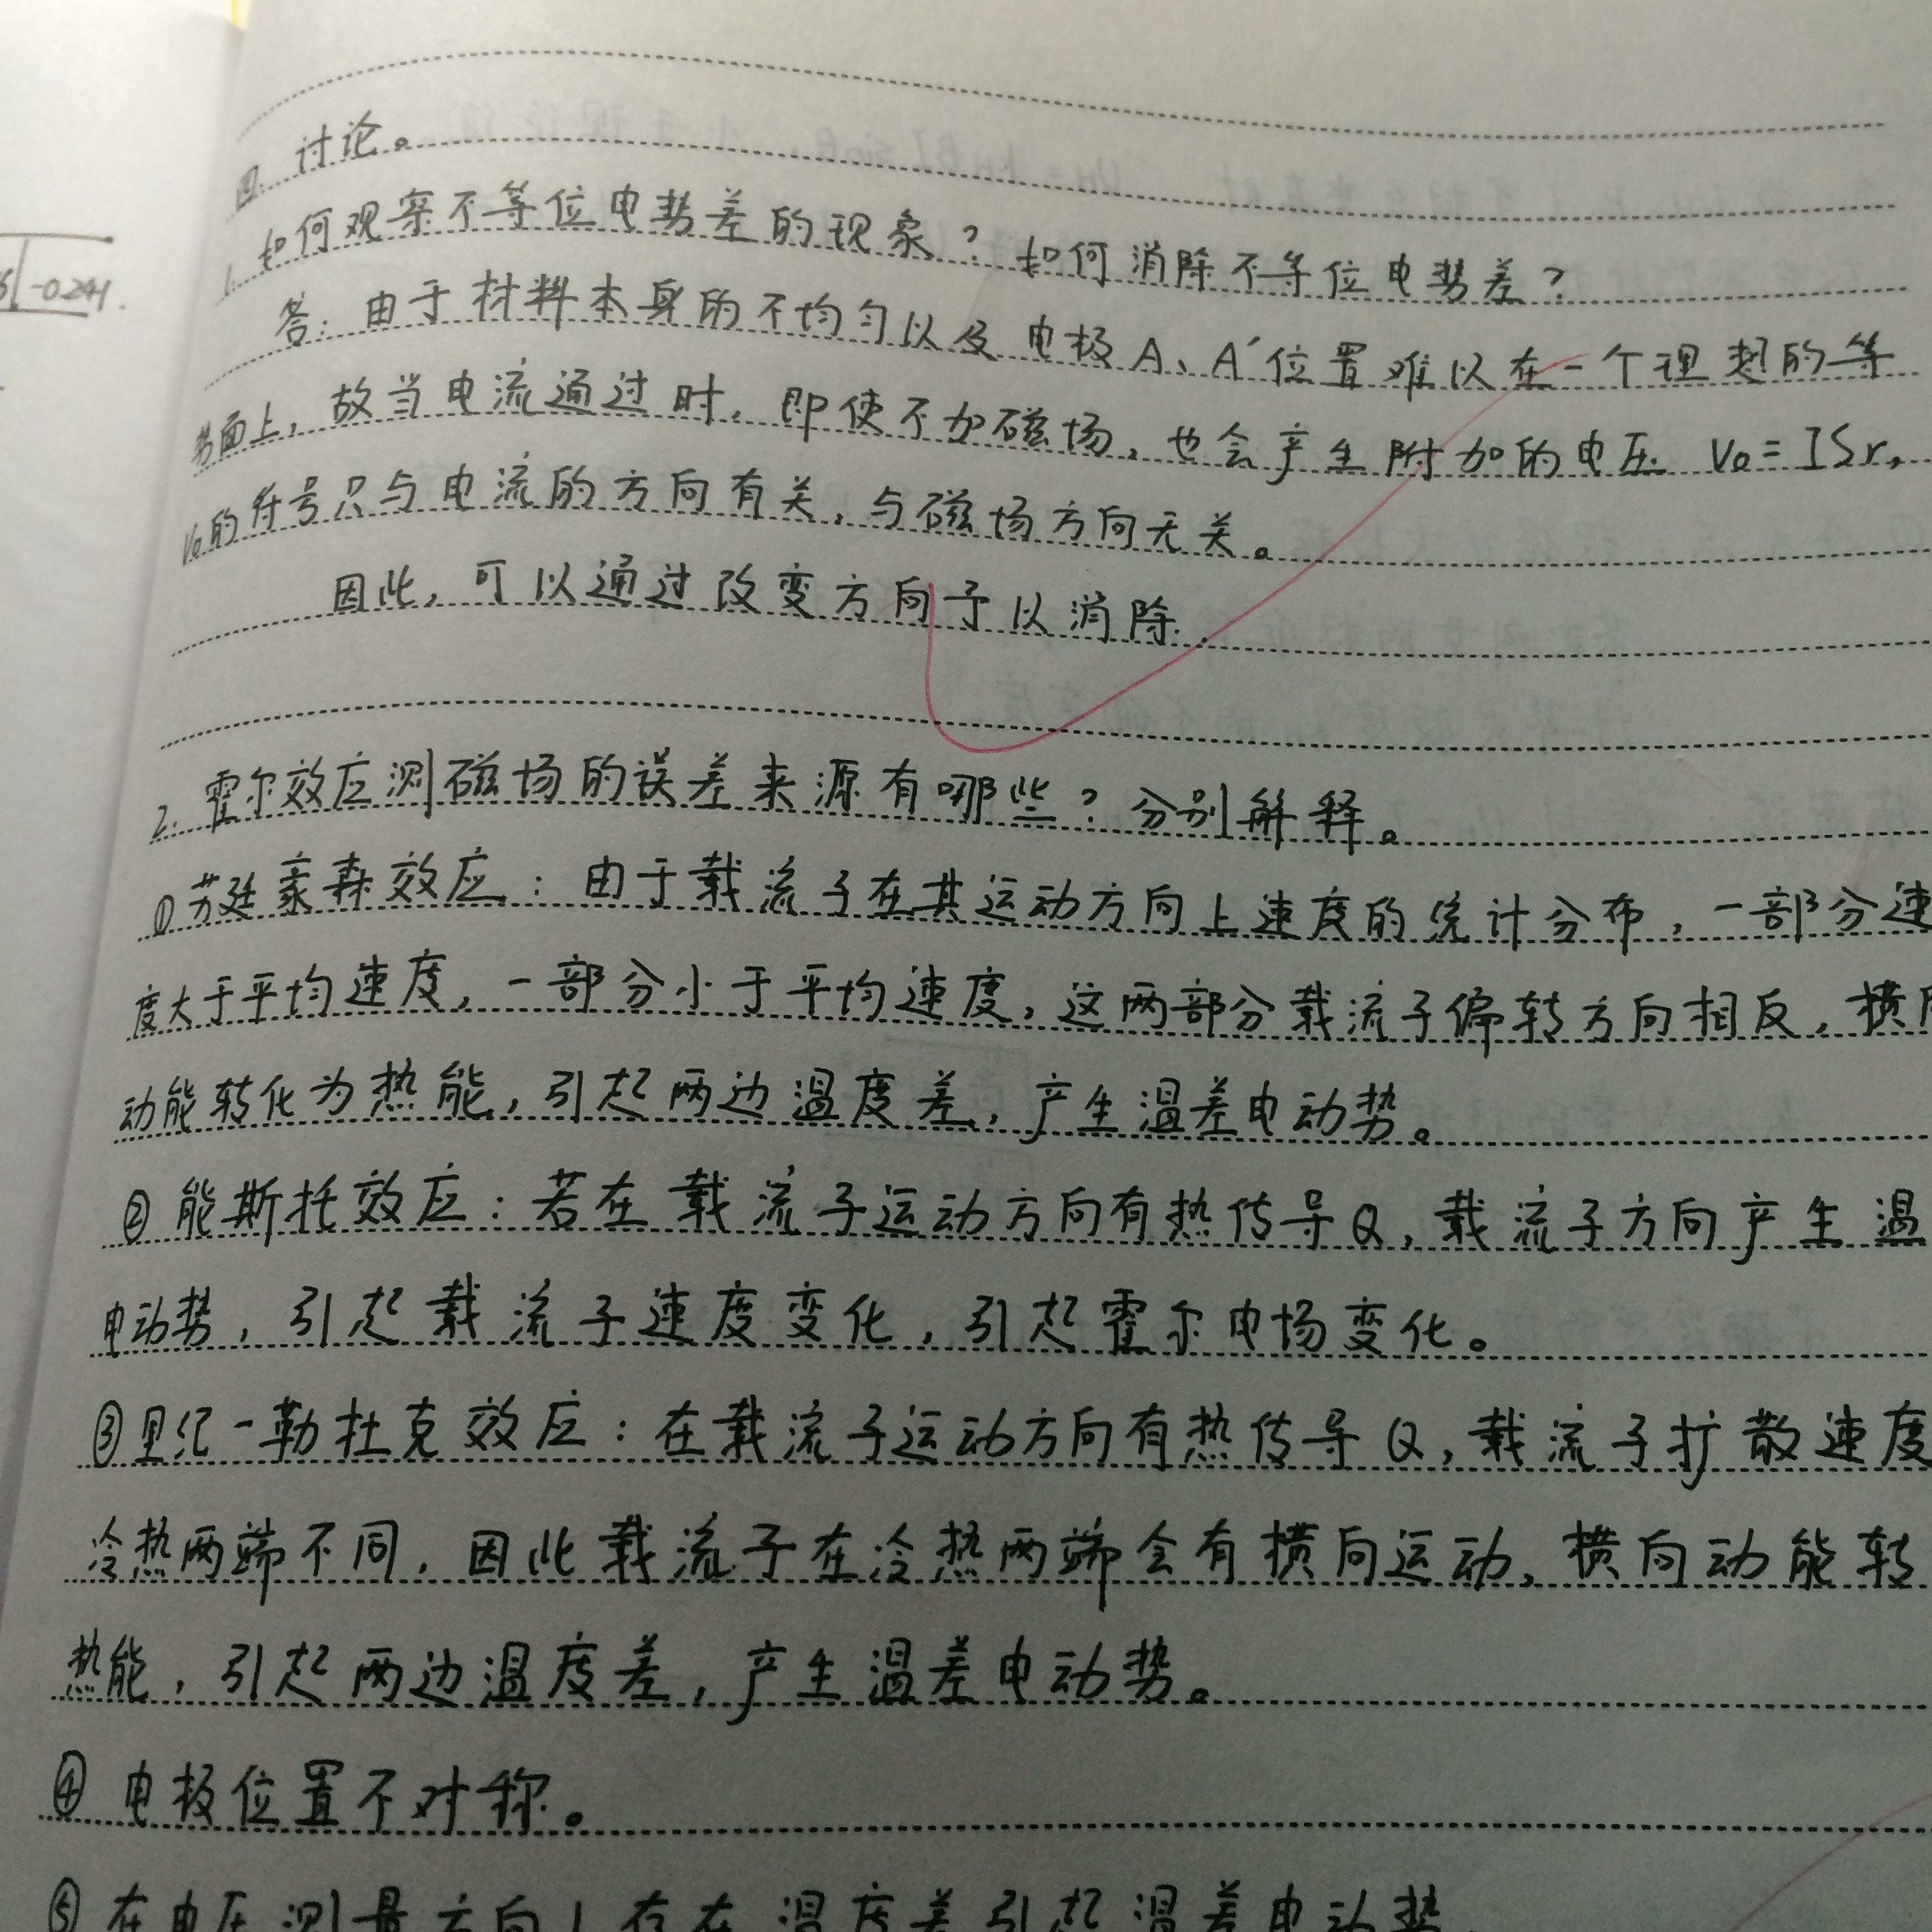 6 -0.241.
四. 讨论。
1. 如何观察不等位电势差的现象？如何消除不等位电势差？
答：由于材料本身的不均匀以及电极A、A′位置难以在一个理想的等
势面上，故当电流通过时，即使不加磁场，也会产生附加的电压 V0=ISr,
V0的符号只与电流的方向有关，与磁场方向无关。
因此，可以通过改变方向予以消除.
2. 霍尔效应测磁场的误差来源有哪些？分别解释。
①苏廷豪森效应：由于载流子在其运动方向上速度的统计分布，一部分速
度大于平均速度，一部分小于平均速度，这两部分载流子偏转方向相反，横向
动能转化为热能，引起两边温度差，产生温差电动势。
②能斯托效应：若在载流子运动方向有热传导Q，载流子方向产生温
电动势，引起载流子速度变化，引起霍尔电场变化。
③里纪-勒杜克效应：在载流子运动方向有热传导Q，载流子扩散速度
冷热两端不同，因此载流子在冷热两端会有横向运动，横向动能转
热能，引起两边温度差，产生温差电动势。
④电极位置不对称。
⑤在电压测量方向上存在温度差引起温差电动势